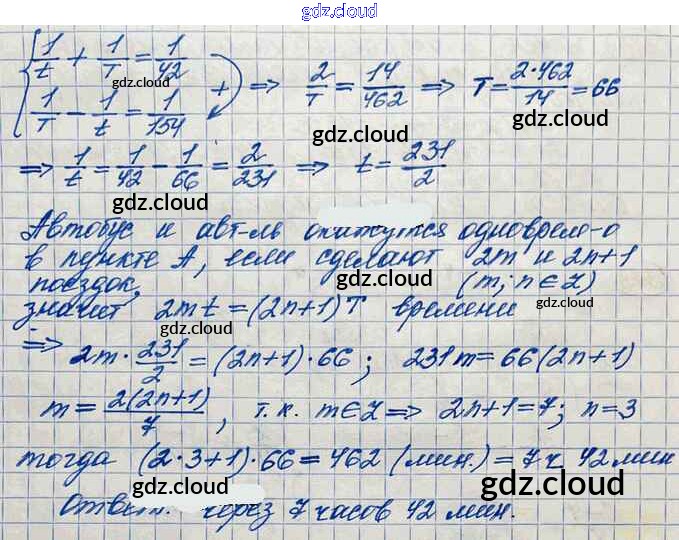 gdz.cloud
1/t + 1/T = 1/42
1/T − 1/t = 1/154
+ ⇒ 2/T = 14/462 ⇒ T = 2·462/14 = 66
gdz.cloud
gdz.cloud
gdz.cloud
⇒ 1/t = 1/42 − 1/66 = 2/231 ⇒ t = 231/2
gdz.cloud
Автобус и авт-ль окажутся одноврем-о
в пункте А, если сделают 2m и 2n+1
поездок, (m; n ∈ Z)
gdz.cloud
gdz.cloud
значит 2mt = (2n+1)T времени
gdz.cloud
⇒ 2m · 231/2 = (2n+1)·66 ; 231m = 66(2n+1)
gdz.cloud
gdz.cloud
m = 2(2n+1)/7 , т.к. m ∈ Z ⇒ 2n+1 = 7; n = 3
тогда (2·3+1)·66 = 462 (мин.) = 7 ч 42 мин
gdz.cloud
gdz.cloud
Ответ: через 7 часов 42 мин.